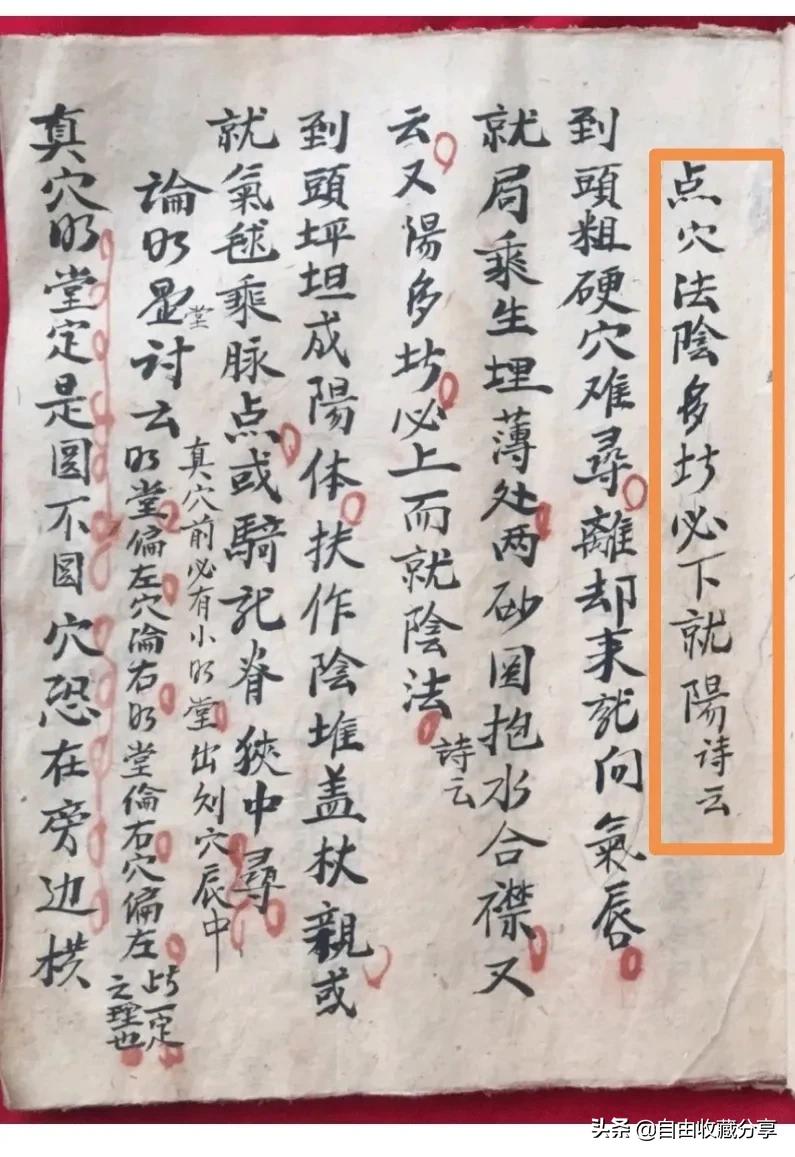 点穴法陰多必下就陽詩云
到頭粗硬穴难尋離却来龙向氣唇
就局乘生埋薄处两砂圆抱水合襟又
云又陽多必上而就陰法詩云
到頭坪坦成陽体扶作陰堆盖杖親或
就氣毬乘脉点或騎龙脊狹中尋
真穴前必有小明堂出穴辰中
論明显堂討云明堂偏左穴淪右明堂倫右穴偏左此一定
之理也
真穴明堂定是圆不圆穴恐在旁边横
头条 @自由收藏分享